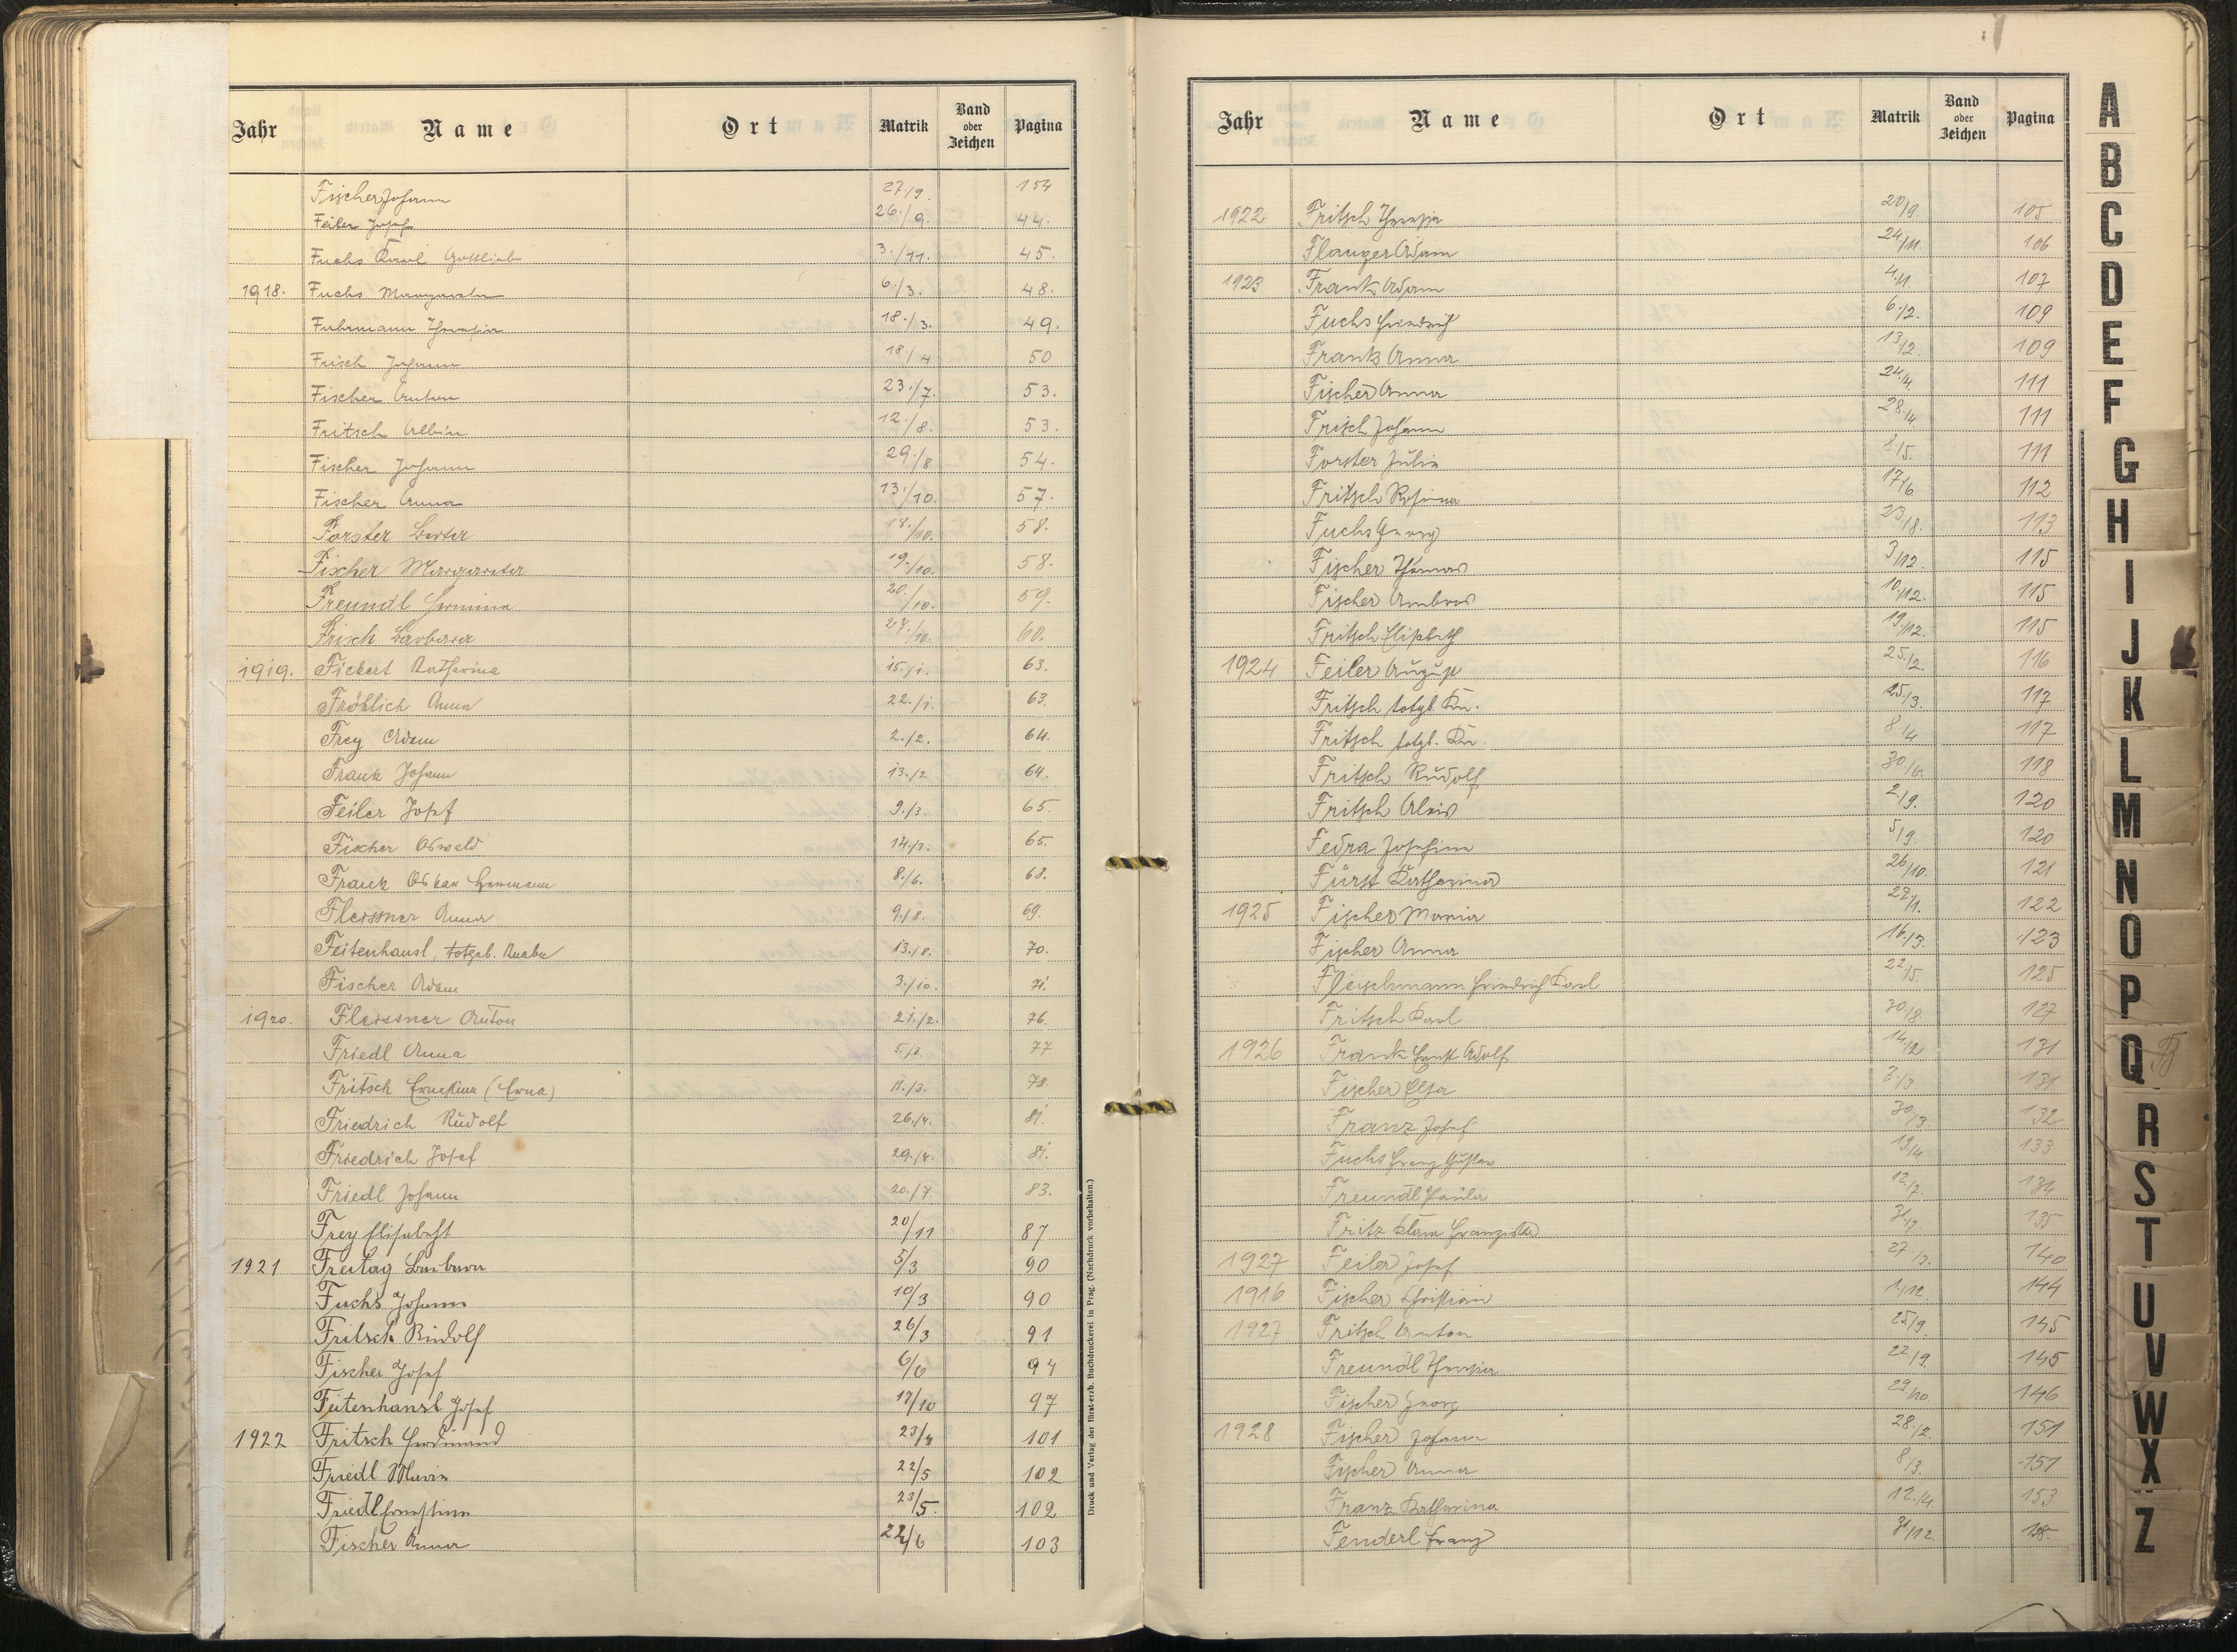 Jahr Name Ort Matrik Band oder Zeichen Pagina
Fischer Johann 27./9. 154
Feiler Josef 26./9. 44.
Fuchs Karl Gottlieb 3./11. 45.
1918. Fuchs Margareta 6./3. 48.
Fuhrmann Theresia 18./3. 49.
Frisch Johann 18./4 50
Fischer Anton 23./7. 53.
Fritsch Albin 12./8. 53.
Fischer Johann 29./8 54.
Fischer Anna 13./10. 57.
Forster Berta 18./10. 58.
Fischer Margareta 19./10. 58.
Freundl Hermina 20./10. 59.
Frisch Barbara 27./10. 60.
1919. Fickert Katharina 15./1. 63.
Fröhlich Anna 22./1. 63.
Frey Adam 2./2. 64.
Frank Johann 13./2 64.
Feiler Josef 9./3. 65.
Fischer Oswald 14./3. 65.
Frank Oskar Hermann 8./6. 68.
Fleissner Anna 9./8. 69.
Feitenhansl, totgeb. Knabe 13./8. 70.
Fischer Adam 3./10. 71.
1920. Fleissner Anton 21./2. 76.
Friedl Anna 5./3 77
Fritsch Ernestine (Erna) 11./3. 78.
Friedrich Rudolf 26./4. 81.
Friedrich Josef 29./4. 81.
Friedl Johann 20./7 83.
Frey Elisabeth 20/11 87
1921 Freitag Barbara 5/3 90
Fuchs Johann 10/3 90
Fritsch Rudolf 26/3 91
Fischer Josef 6/6 94
Feitenhansl Josef 17/10 97
1922 Fritsch Ferdinand 23/4 101
Friedl Maria 22/5 102
Friedl Ernestine 23/5. 102
Fischer Anna 22/6 103
Druck und Verlag der fürst-erzb. Buchdruckerei in Prag. (Nachdruck vorbehalten.)
Jahr Name Ort Matrik Band oder Zeichen Pagina
1922 Fritsch Theresia 20/9. 105
Flauger Adam 24./11. 106
1923 Frank Adam 4./1. 107
Fuchs Friedrich 6./2. 109
Frank Anna 13/2. 109
Fischer Anna 24./4. 111
Frisch Johann 28./4. 111
Forster Julia 8./5. 111
Fritsch Rosina 17/6. 112
Fuchs Georg 23/8. 113
Fischer Thomas 3./12. 115
Fischer Ambros 10./12. 115
Fritsch Elisabeth 19./12. 115
1924 Feiler August 25./2. 116
Fritsch totgb. Kn. 25/3. 117
Fritsch totgb. Kn. 8./4 117
Fritsch Rudolf 30/6. 118
Fritsch Alois 2./9. 120
Fedra Josefine 5/9. 120
Fürst Katharina 26/10. 121
1925 Fischer Maria 27/1. 122
Fischer Anna 16./3. 123
Fleischmann Friedrich Karl 22/5. 125
Fritsch Karl 30/8. 127
1926 Frank Ernst Adolf 14/2 131
Fischer Elsa 3./3. 131
Franz Josef 30/3. 132
Fuchs Franz Gustav 19./4 133
Freundl Paula 12./7. 134
Fritz Klara Franziska 135
1927 Feiler Josef 27./3. 140
1916 Fischer Christian 1./12. 144
1927 Fritsch Anton 25/9. 145
Freundl Theresia 22/9. 145
Fischer Georg 29/10. 146
1928 Fischer Johann 28./2. 151
Fischer Anna 8/3. 151
Franz Katharina 12./4. 153
Fenderl Franz 31/12 158
A
B
C
D
E
F
G
H
I
J
K
L
M
N
O
P
Q
R
S
T
U
V
W
X
Z